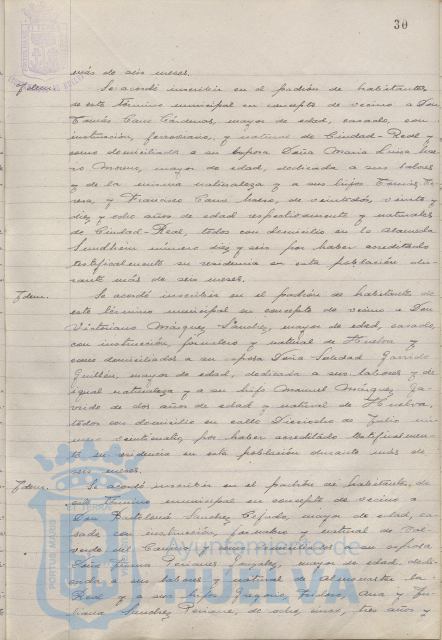 30
más de seis meses.
Idem. Se acordó inscribir en el padrón de habitantes
de este término municipal en concepto de vecino a Don
Tomás Cano Cárdenas, mayor de edad, casado, con
instrucción, ferroviario, y natural de Ciudad-Real y
como domiciliada a su esposa Doña María Luisa
Moreno, mayor de edad, dedicada a sus labores
y de la misma naturaleza y a sus hijos Tomás,
y Francisco Cano de veintidós, veinte y
diez y ocho años de edad respectivamente y naturales
de Ciudad-Real, todos con domicilio en la Alameda
Sundheim número diez y seis por haber acreditado
testificalmente su residencia en esta población du-
rante más de seis meses.
Idem. Se acordó inscribir en el padrón de habitantes de
este término municipal en concepto de vecino a Don
Victoriano Márquez Sánchez, mayor de edad, casado,
con instrucción, jornalero y natural de Huelva y
como domiciliados a su esposa Doña Soledad Garrido
Guillén, mayor de edad, dedicada a sus labores y de
igual naturaleza y a su hijo Manuel Márquez Ga-
rrido de dos años de edad y natural de Huelva,
todos con domicilio en calle Dieciocho de Julio nú-
mero veinticuatro, por haber acreditado testificalmen-
te su residencia en esta población durante más de
seis meses.
Idem. Se acordó inscribir en el padrón de habitantes de
este término municipal en concepto de vecino a
Don Bartolomé Sánchez mayor de edad, ca-
sado con instrucción, jornalero y natural de Val-
verde del Camino y como domiciliados a su esposa
Doña mayor de edad, dedi-
cada a sus labores y natural de Almonaster la
Real y a sus hijos Gregorio, Ana y
Sánchez de ocho, once, tres años y
PORTUS MARIS
Ayuntamiento de
HUELVA